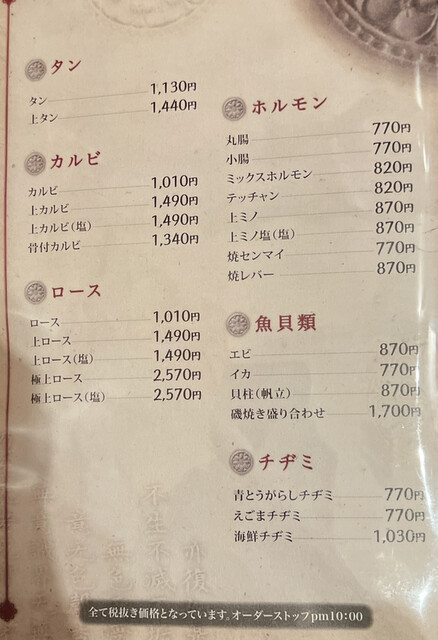 タン
タン 1,130円
上タン 1,440円
カルビ
カルビ 1,010円
上カルビ 1,490円
上カルビ(塩) 1,490円
骨付カルビ 1,340円
ロース
ロース 1,010円
上ロース 1,490円
上ロース(塩) 1,490円
極上ロース 2,570円
極上ロース(塩) 2,570円
ホルモン
丸腸 770円
小腸 770円
ミックスホルモン 820円
テッチャン 820円
上ミノ 870円
上ミノ塩(塩) 870円
焼センマイ 770円
焼レバー 870円
魚貝類
エビ 870円
イカ 770円
貝柱(帆立) 870円
磯焼き盛り合わせ 1,700円
チヂミ
青とうがらしチヂミ 770円
えごまチヂミ 770円
海鮮チヂミ 1,030円
不生不滅
無色
亦復
全て税抜き価格となっています。オーダーストップpm10:00